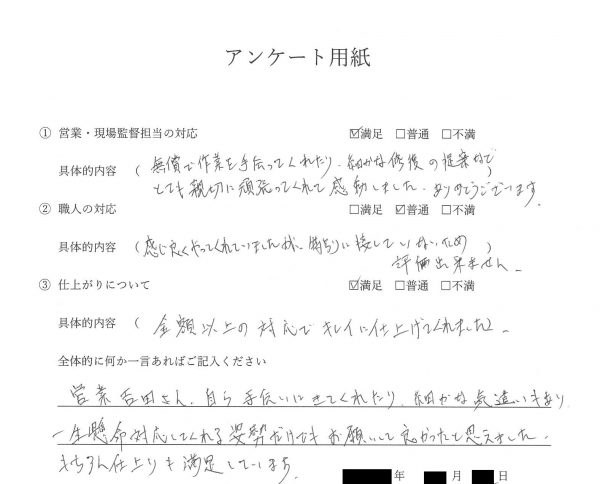 アンケート用紙
① 営業・現場監督担当の対応 ☑満足 □普通 □不満
具体的内容 ( 無償で作業を手伝ってくれたり、細かな修復の提案など )
とても親切に頑張ってくれて感動しました。ありがとうございます。
② 職人の対応 □満足 ☑普通 □不満
具体的内容 ( 感じ良くやってくれていましたが、に接していないため )
評価出来ません。
③ 仕上がりについて ☑満足 □普通 □不満
具体的内容 ( 金額以上の対応でキレイに仕上げてくれました。
全体的に何か一言あればご記入ください
営業吉田さん、自ら手伝いにきてくれたり、細かな気遣いもあり
一生懸命対応してくれる姿勢だけでもお願いして良かったと思えました。
もちろん仕上りも満足しています。
年 月 日